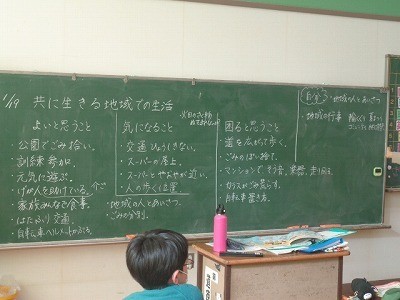 1/19 共に生きる地域での生活
よいと思うこと
・公園でごみ拾い。
・訓練参加
・元気に遊ぶ。
・げが人を助けている。
・家族みんなで食事。
・はたふり 交通。
・自転車ヘルメットかぶる。
気になること
・交通 びょうしきない。
・スーパーの屋上。
・スーパーとやたやが近い。
・人の歩く位置。
・地域の人とあいさつ。
・ごみの分別。
困ると思うこと
・道を広がって歩く。
・ごみのぽい捨て。
・マンションでそう音、楽器、走り回る。
・カラスがごみ荒らす。
・自転車置き方。
自分 ・地域の人とあいさつ
・地域の行事